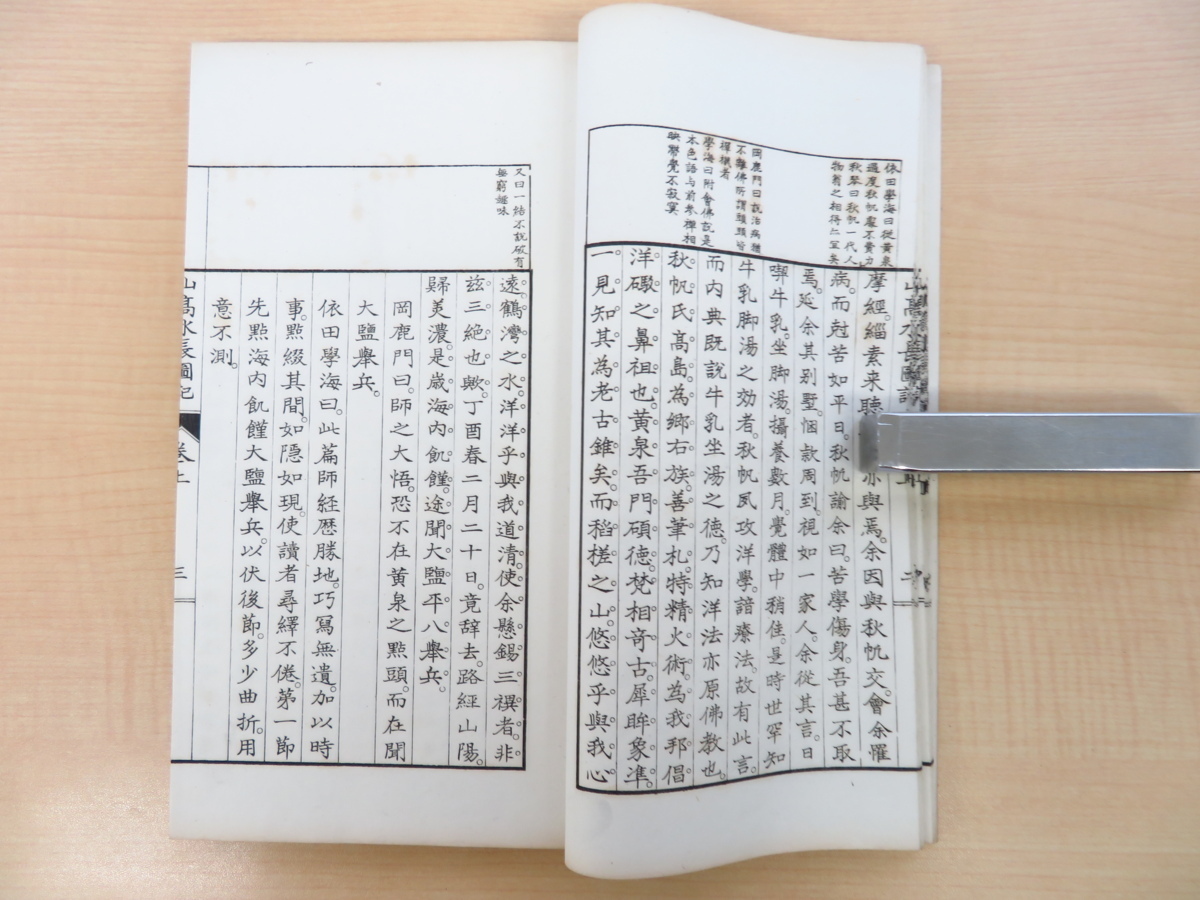 依田學海曰從黃泉
過度秋帆處不費力
秋琴曰秋帆一代人
物翁之相得亦宜矣
岡鹿門曰説治病猶
不離佛所謂頭頭皆
禪機者
學海曰附會佛說是
本色語与前參禪相
映帶覺不寂寞
摩經。緇素来聽亦與焉。余因與秋帆交。會余懼
病。而尅苦如平日。秋帆諭余曰。苦學傷身。吾甚不取
焉。延余其别墅。悃款周到。視如一家人。余從其言。日
喫牛乳。坐脚湯。攝養數月。覺體中稍佳。是時世罕知
牛乳脚湯之効者。秋帆夙攻洋學。諳療法。故有此言。
而内典既説牛乳坐湯之德。乃知洋法亦原佛教也。
秋帆氏髙島。為鄉右族。善筆札。特精火術。為我邦倡
洋礮之鼻祖也。黃泉吾門碩德。梵相奇古。犀眸象準。
一見知其為老古錐矣。而稻槎之山。悠悠乎與我心
又曰一結不説破有
無窮雄味
遠。鶴灣之水。洋洋乎與我道清。使余懸錫三禩者。非
兹三絶也歟。丁酉春二月二十日。竟辞去。路經山陽。
歸美濃。是歳海内飢饉。途聞大鹽平八舉兵。
岡鹿門曰。師之大悟。恐不在黄泉之點頭。而在聞
大鹽舉兵。
依田學海曰。此篇師経歴勝地。巧冩無遺。加以時
事。點綴其間。如隠如現。使讀者尋繹不倦。第一節
先點海内飢饉大鹽舉兵。以伏後節。多少曲折。用
意不測。
山髙水長圖記
卷上
三